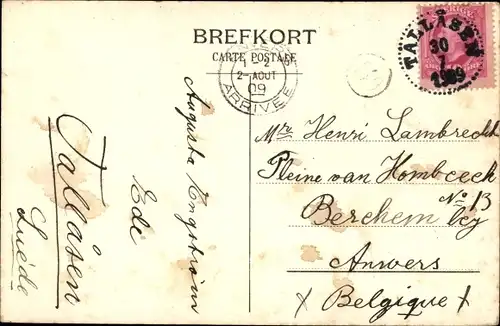 BREFKORT
CARTE POSTALE
TALLÅSEN
30
7
1909
2-AOUT
09
ARRIVÉE
Augusta Engström
Ede
Tallåsen
Suède
Mr Henri Lambrecht
Pleine van Hombeeck
No 13
Berchem
Anvers
Belgique